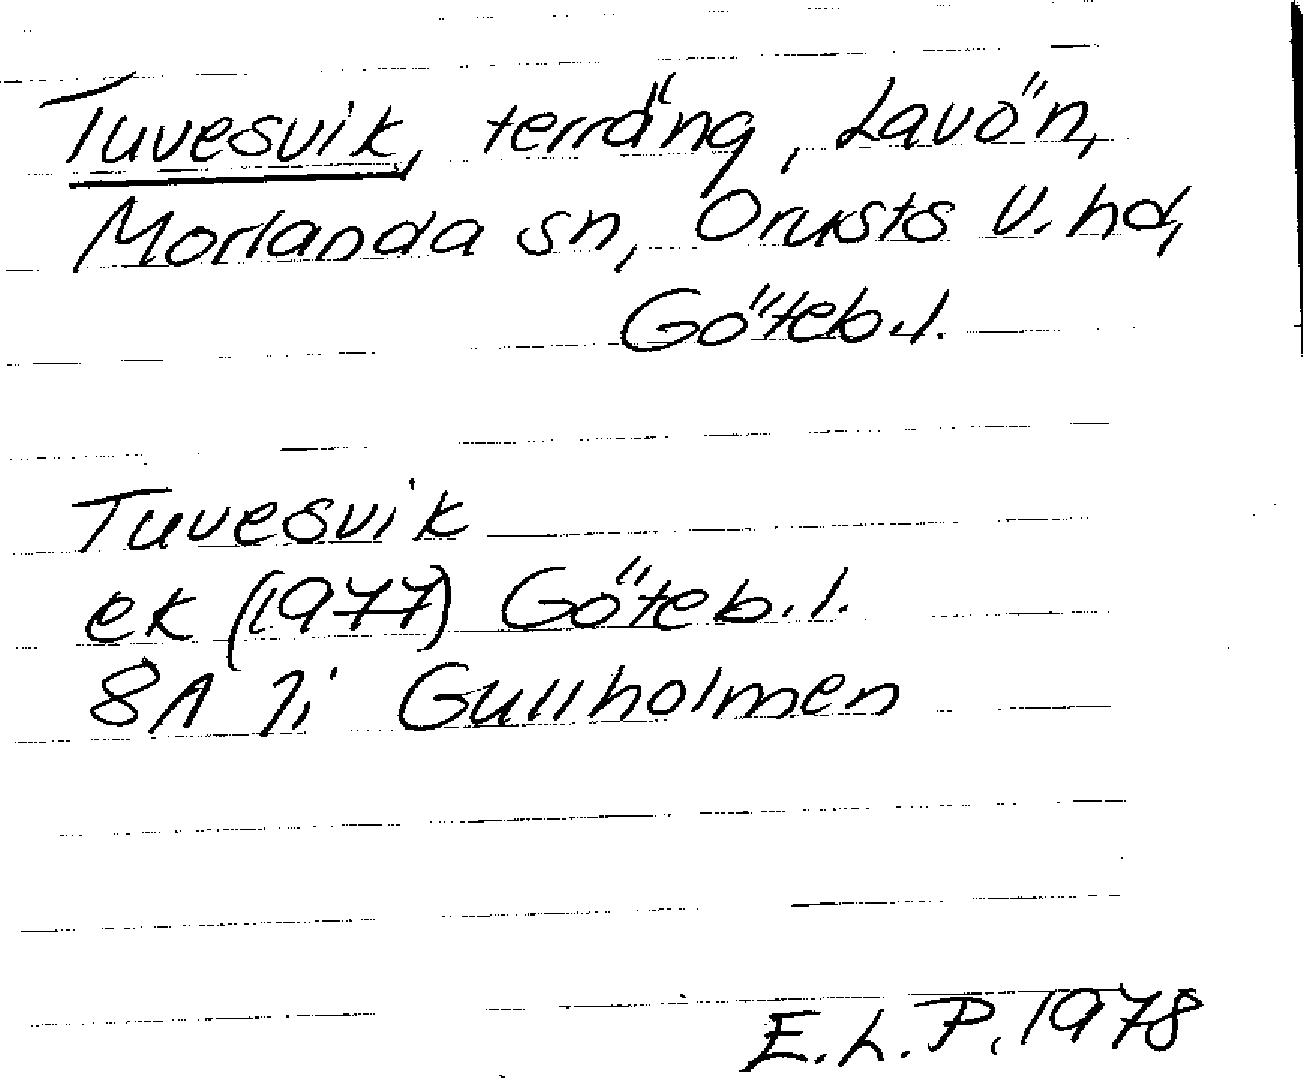 Tuvesvik, terräng, Lavön,
Morlanda sn, Orusts V. hd,
Göteb.l.
Tuvesvik
ek (1977) Göteb.l.
8A 7i Gullholmen
E.L.P. 1978